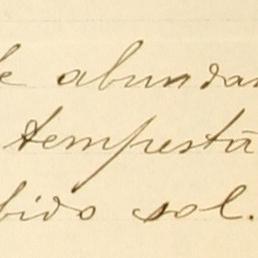 de abundan
tempestà
bido sol.